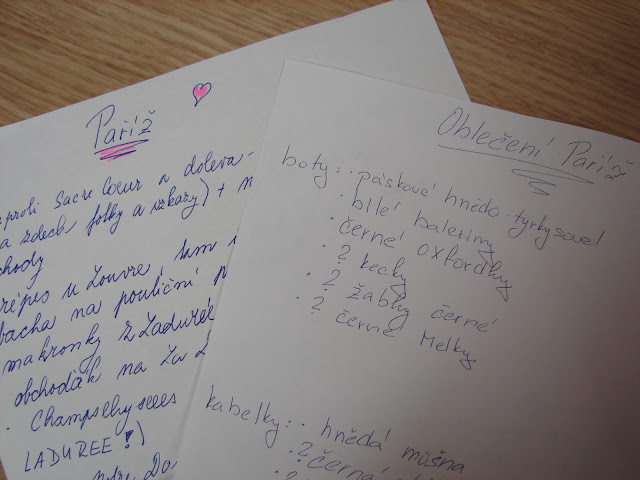 Paříž
proti Sacre Coeur a doleva-
a zdech fotky a vzkazy) +
chody
répes u Louvre, tam
bacha na pouliční
makronky z Ladurée
obchoďák na La
· Champselhysees
LADUREE!)
Oblečení Paříž
boty: · páskové hnědo-tyrkysové
· bílé baleríny
· černé oxfordky
· ? kecky
· ? žabky černé
· ? černé Melky
kabelky: · hnědá mošna
· ? černá